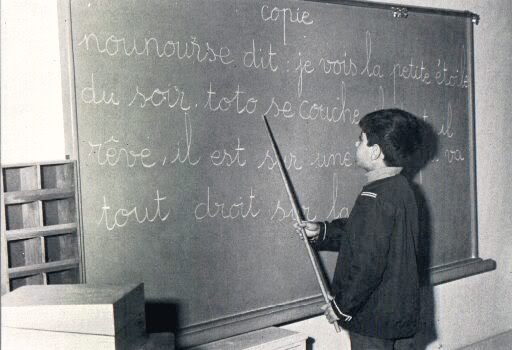 copie
nounourse dit : je vois la petite étoile
du soir, toto se couche il
rêve, il est sur une va
tout droit sur la